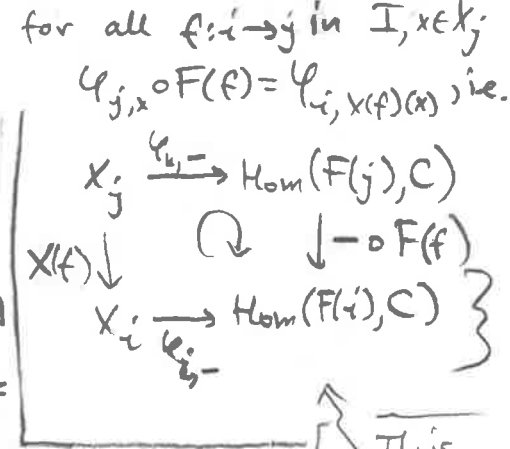 for all f:i→j in I, x∈X_j
φ_{j,x}∘F(f)=φ_{i,X(f)(x)}, ie.
X_j —φ_{i,-}→ Hom(F(j),C)
X(f)↓ ↻ ↓-∘F(f)
X_i —φ_{i,-}→ Hom(F(i),C)
This